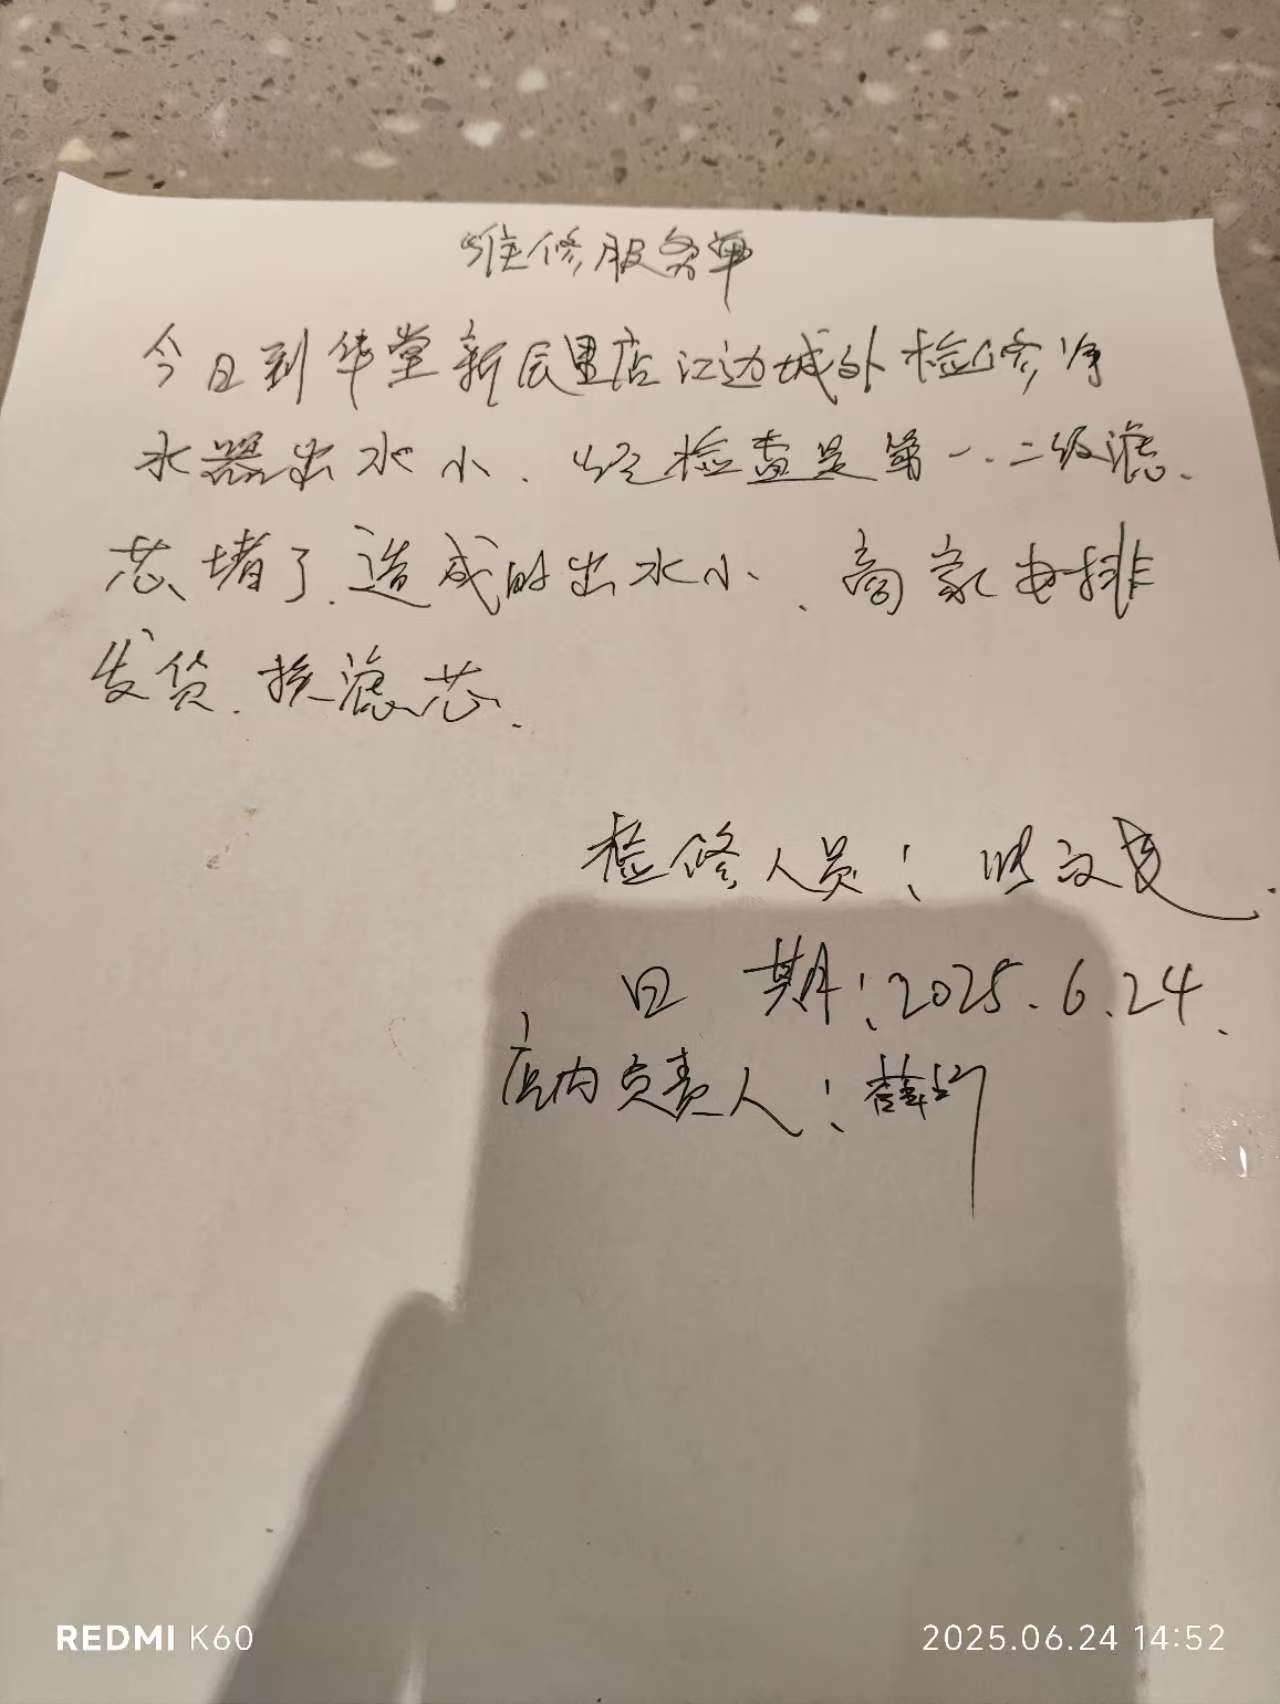 维修服务单
今日到华堂新辰里店江边城外检修净
水器出水小.经检查是第一.二级滤
芯堵了.造成的出水小.商家安排
发货.换滤芯.
检修人员:
日 期:2025.6.24.
店内负责人:薛
REDMI K60
2025.06.24 14:52